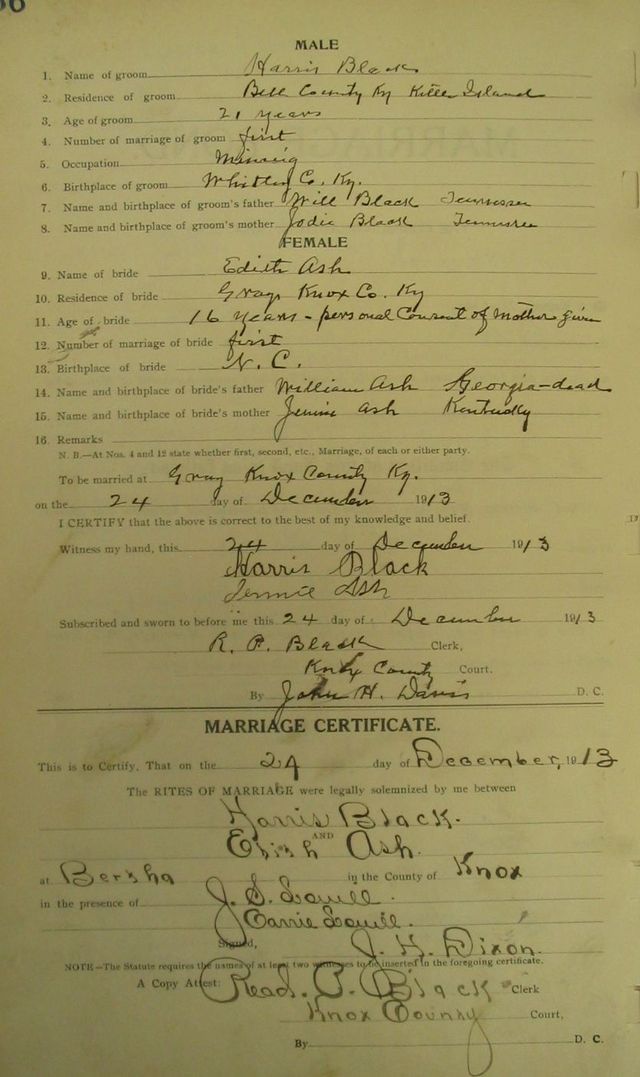 36
MALE
1. Name of groom Harris Black
2. Residence of groom Bell County Ky Island
3. Age of groom 21 years
4. Number of marriage of groom first
5. Occupation Mining
6. Birthplace of groom Whitley Co. Ky.
7. Name and birthplace of groom's father Will Black Tennessee
8. Name and birthplace of groom's mother Jodie Black Tennessee
FEMALE
9. Name of bride Edith Ash
10. Residence of bride Grays Knox Co. Ky
11. Age of bride 16 years - personal Consent of Mother given
12. Number of marriage of bride first
13. Birthplace of bride N. C.
14. Name and birthplace of bride's father William Ash Georgia-dead
15. Name and birthplace of bride's mother Jennie Ash Kentucky
16. Remarks
N. B.—At Nos. 4 and 12 state whether first, second, etc., Marriage, of each or either party.
To be married at Gray Knox County Ky.
on the 24 day of December 1913
I CERTIFY that the above is correct to the best of my knowledge and belief.
Witness my hand, this 24 day of December 1913
Harris Black
Jennie Ash
Subscribed and sworn to before me this 24 day of December 1913
R. P. Black Clerk,
Knox County Court.
By John H. Davis D. C.
MARRIAGE CERTIFICATE.
This is to Certify, That on the 24 day of December, 1913
The RITES OF MARRIAGE were legally solemnized by me between
Harris Black.
AND
Ash.
at Bertha in the County of Knox
in the presence of J. S.
Carrie
Signed, J. H. Dixon.
NOTE—The Statute requires the names of at least two witnesses to be inserted in the foregoing certificate.
A Copy Attest: Read. P. Black Clerk
Knox County Court,
By D. C.